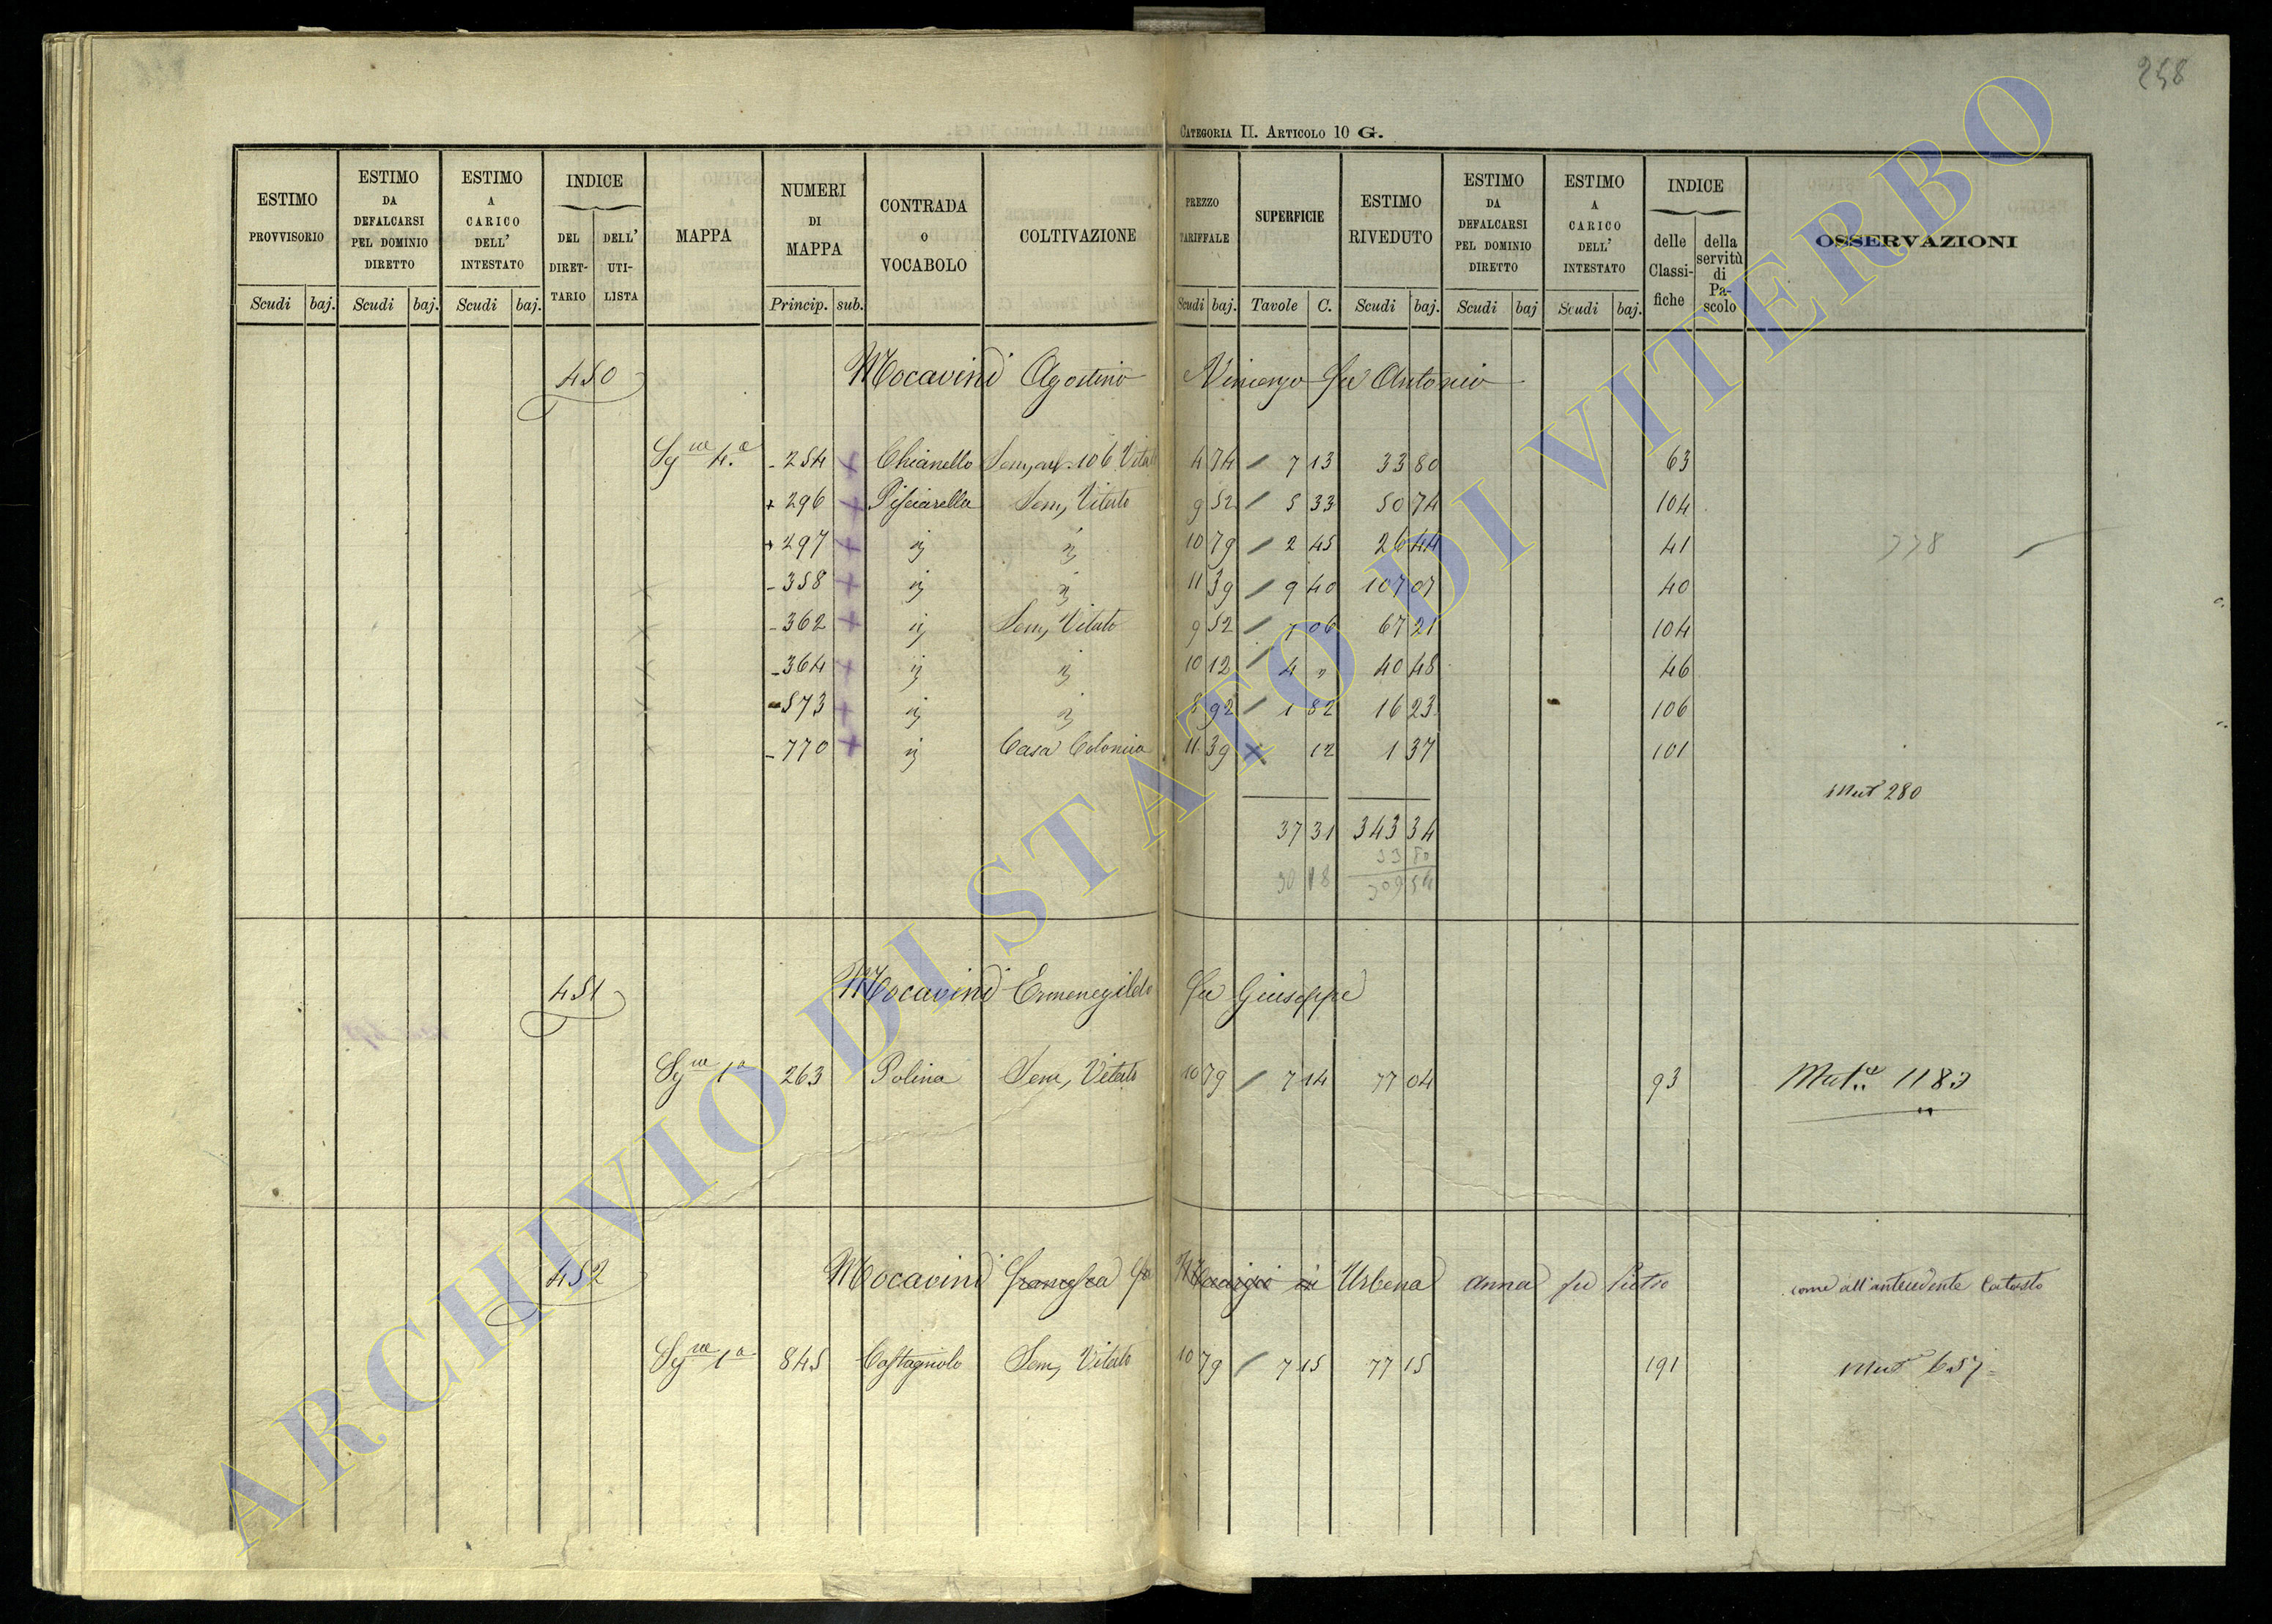 258
CATEGORIA II. ARTICOLO 10 G.
ESTIMO PROVVISORIO Scudi baj.
ESTIMO DA DEFALCARSI PEL DOMINIO DIRETTO Scudi baj.
ESTIMO A CARICO DELL' INTESTATO Scudi baj.
INDICE DEL DIRET-TARIO DELL' UTI-LISTA
MAPPA
NUMERI DI MAPPA Princip. sub.
CONTRADA O VOCABOLO
COLTIVAZIONE
PREZZO TARIFFALE Scudi baj.
SUPERFICIE Tavole C.
ESTIMO RIVEDUTO Scudi baj.
ESTIMO DA DEFALCARSI PEL DOMINIO DIRETTO Scudi baj
ESTIMO A CARICO DELL' INTESTATO Scudi baj.
INDICE delle Classi-fiche della servitù di Pa-scolo
OSSERVAZIONI
450 Mocavini Agostino Vincenzo fu Antonio
Sg.ne 4.a - 254 + Chianello 4 74 / 7 13 33 80 63
+ 296 + Pisciarella Sem, Vitato 9 52 / 5 33 50 74 104
+ 297 + 10 79 / 2 45 26 44 41
338
- 358 + 11 39 / 9 40 107 07 40
- 362 + Sem, Vitato 9 52 / 7 06 67 21 104
- 364 + 10 12 / 4 " 40 48 46
- 573 + 8 92 / 1 82 16 23 106
- 770 + Casa Colonica 11 39 x 12 1 37 101
Mut 280
37 31 343 34
33 80
30 18 309 54
451 Mocavini Ermenegildo fu Giuseppe
Sg.ne 1a 263 Polina Sem, Vitato 10 79 / 7 14 77 04 93 Mut.e 1183
452 Mocavini Francesca fu in Urbena Anna fu Pietro come all'antecedente Catasto
Sg.ne 1a 845 Castagnolo Sem, Vitato 10 79 / 7 15 77 15 191 Mut 657
ARCHIVIO DI STATO DI VITERBO